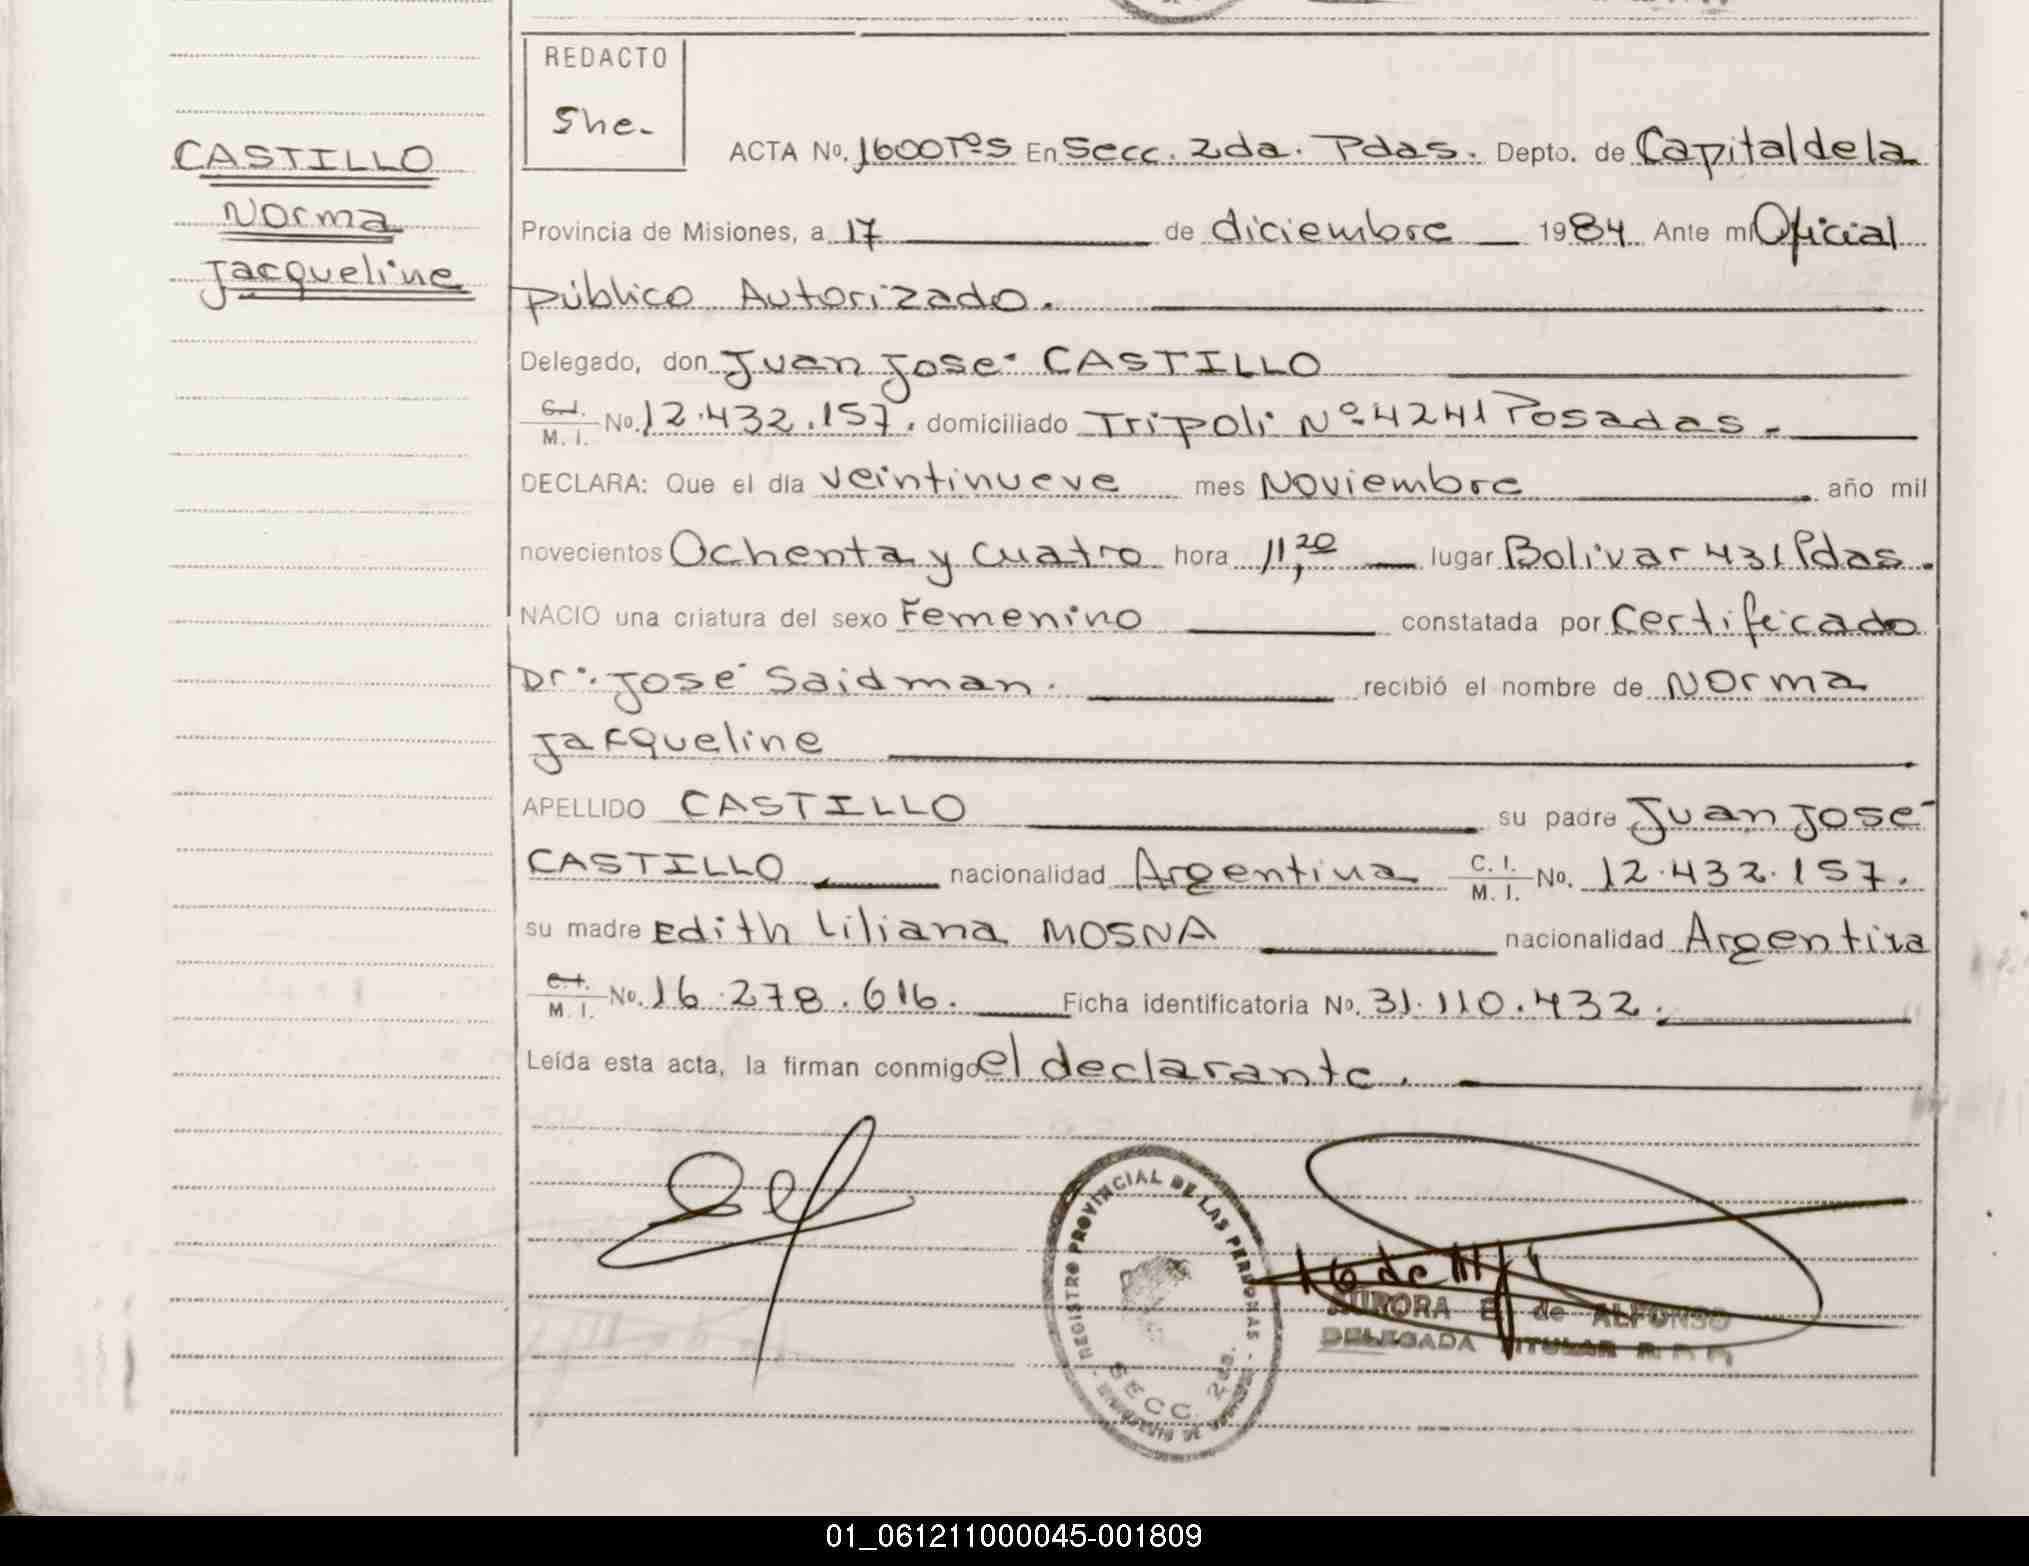 REDACTO
She.
CASTILLO
Norma
Jacqueline
ACTA No. 1600Tºs En Secc. 2da. Pdas. Depto. de Capital de la
Provincia de Misiones, a 17 de diciembre 1984 Ante mi Oficial
público Autorizado.
Delegado, don Juan José CASTILLO
C.I. M. I. No. 12.432.157. domiciliado Tripoli Nº 4241 Posadas.
DECLARA: Que el día veintinueve mes Noviembre año mil
novecientos Ochenta y cuatro hora 11,20 lugar Bolivar 431 Pdas.
NACIO una criatura del sexo Femenino constatada por Certificado
Dr. José Saidman. recibió el nombre de Norma
Jacqueline
APELLIDO CASTILLO su padre Juan José
CASTILLO nacionalidad Argentina C. I. M. I. No. 12.432.157.
su madre Edith Liliana MOSNA nacionalidad Argentina
C.I. M. I. No. 16.278.616. Ficha identificatoria No. 31.110.432.
Leída esta acta, la firman conmigo el declarante.
REGISTRO PROVINCIAL DE LAS PERSONAS
SECC. 2da.
AURORA E. de ALFONSO
DELEGADA TITULAR
01_061211000045-001809